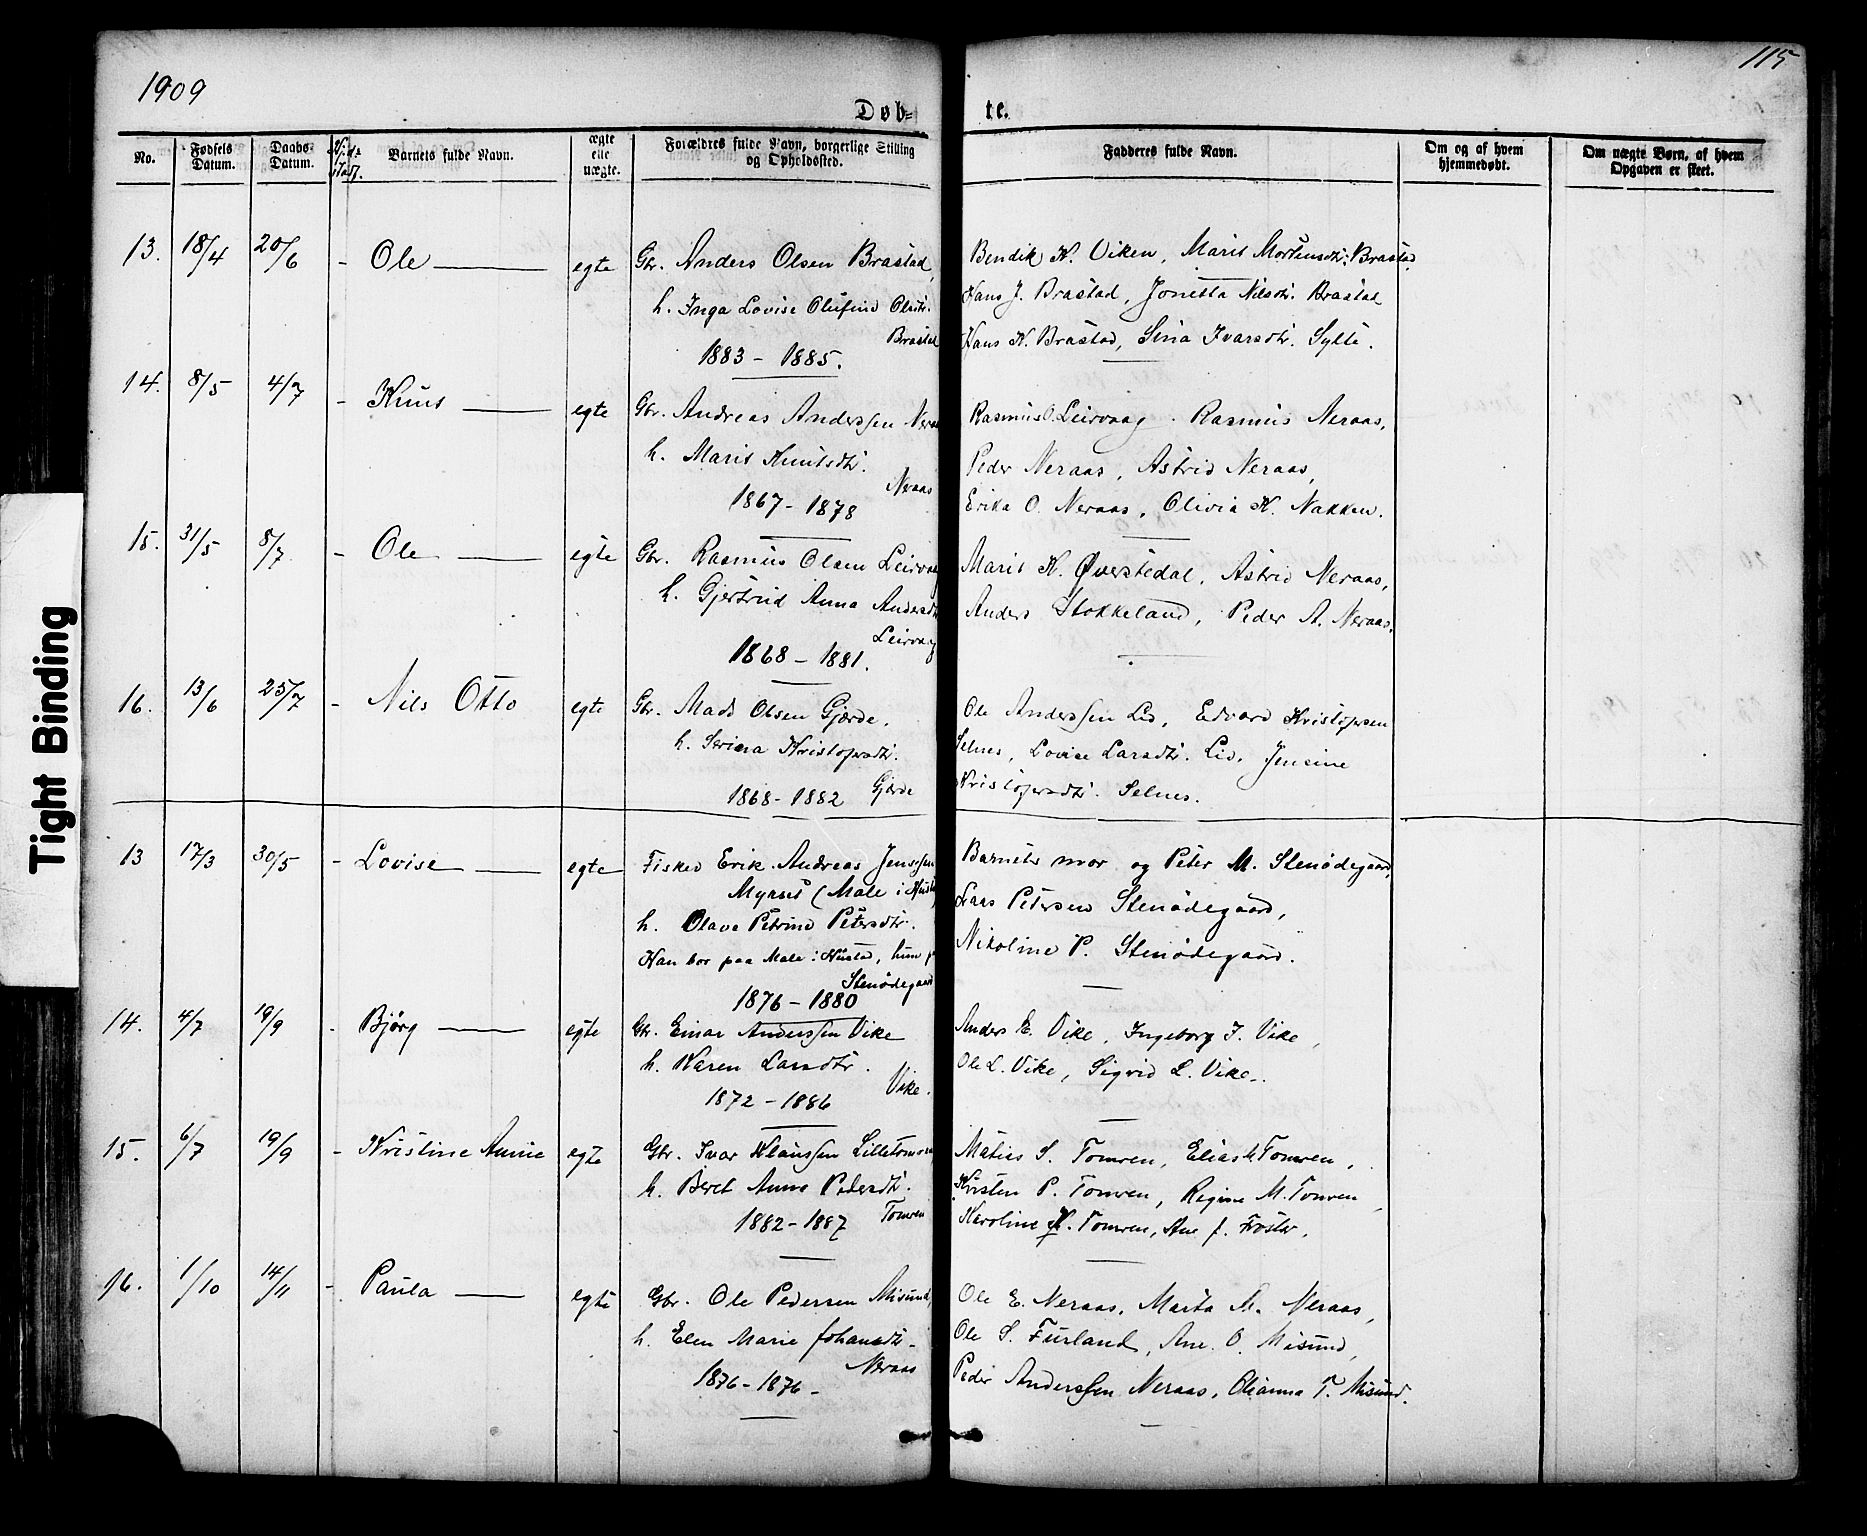 1909
115
Døb-
te.
No.
Fødsels Datum.
Daabs- Datum.
Barnets fulde Navn.
ægte elle uægte.
Forældres fulde Navn, borgerlige Stilling og Opholdssted.
Faddernes fulde Navn.
Om og af hvem hjemmedøbt.
Om uægte Børn, af hvem Opgaven er skeet.
13. 18/4 20/6 - Ole — egte Gbr. Anders Olsen Brastad, Bendik K. Viken, Marit Mortensdtr. Brastad
h. Inga Lovise Olufine Olsdtr. Hans J. Brastad, Jonetta Nilsdtr. Brastad
Brastad Hans K. Brastad, Sina Ivarsdtr. Sylte.
1883 - 1885.
14. 8/5 4/7 - Knut — egte Gbr. Andreas Anderssen Neraas Rasmus O. Leirvaag. Rasmus Neraas,
h. Marit Knutsdtr. Peder Neraas, Astrid Neraas,
Neraas Erika O. Neraas, Olivia K. Nakken.
1867 - 1878
15. 31/5 8/7 - Ole — egte Gbr. Rasmus Olsen Leirvaag Marit K. Øverstedal, Astrid Neraas,
h. Gjertrud Anna Andersdtr Anders Stokkeland, Peder A. Neraas.
Leirvaag
1868 - 1881.
16. 13/6 25/7 - Nils Otto egte Gbr. Mads Olsen Gjerde. Ole Anderssen Lid, Edvard Kristofersen
h. Serina Kristofersdtr. Selnes, Lovise Larsdtr. Lid, Jensine
1868 - 1882 Gjerde Kristofersdtr. Selnes.
13 17/3 30/5 - Lovise — egte Fisker Erik Andreas Jenssen Barnets mor og Peter M. Stenødegaard,
Myrset (Male i Hustad) Laas Petersen Stenødegaard,
h. Olave Petrine Petersdtr. Nikoline P. Stenødegaard.
Han bor paa Male i Hustad, hun p
Stenødegaard
1876 - 1880
14. 4/7 19/9 - Bjørg — egte Gbr. Einar Anderssen Vike Anders E. Vike, Ingeborg J. Vike,
h. Karen Larsdtr. Ole L. Vike, Sigrid L. Vike.
Vike.
1872 - 1886
15. 6/7 19/9 - Kristine Anne egte Gbr. Ivar Klaussen Lilletomren Matias S. Tomren, Elias K Tomren,
h. Beret Anna Pedersdtr. Kirsten P. Tomren, Regine M. Tomren,
1882 - 1887 Tomren Karoline K. Tomren, Ane J. Froster.
16. 1/10 14/11 - Paula — egte Gbr. Ole Pedersen Misund, Ole E. Neraas, Marta M. Neraas,
h. Elen Marie Johansdtr. Ole S. Furland, Ane O. Misund,
Neraas Peder Anderssen Neraas, Olianna T. Misund.
1876 - 1876 -
Tight Binding